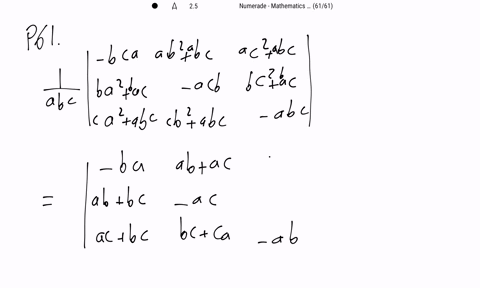 2.5 Numerade - Mathematics ... (61/61)
P61.
1/abc | -bca ab²+abc ac²+abc |
| ba²+bac -acb bc²+bac |
| ca²+abc cb²+abc -abc |
= | -ba ab+ac
| ab+bc -ac
| ac+bc bc+ca -ab